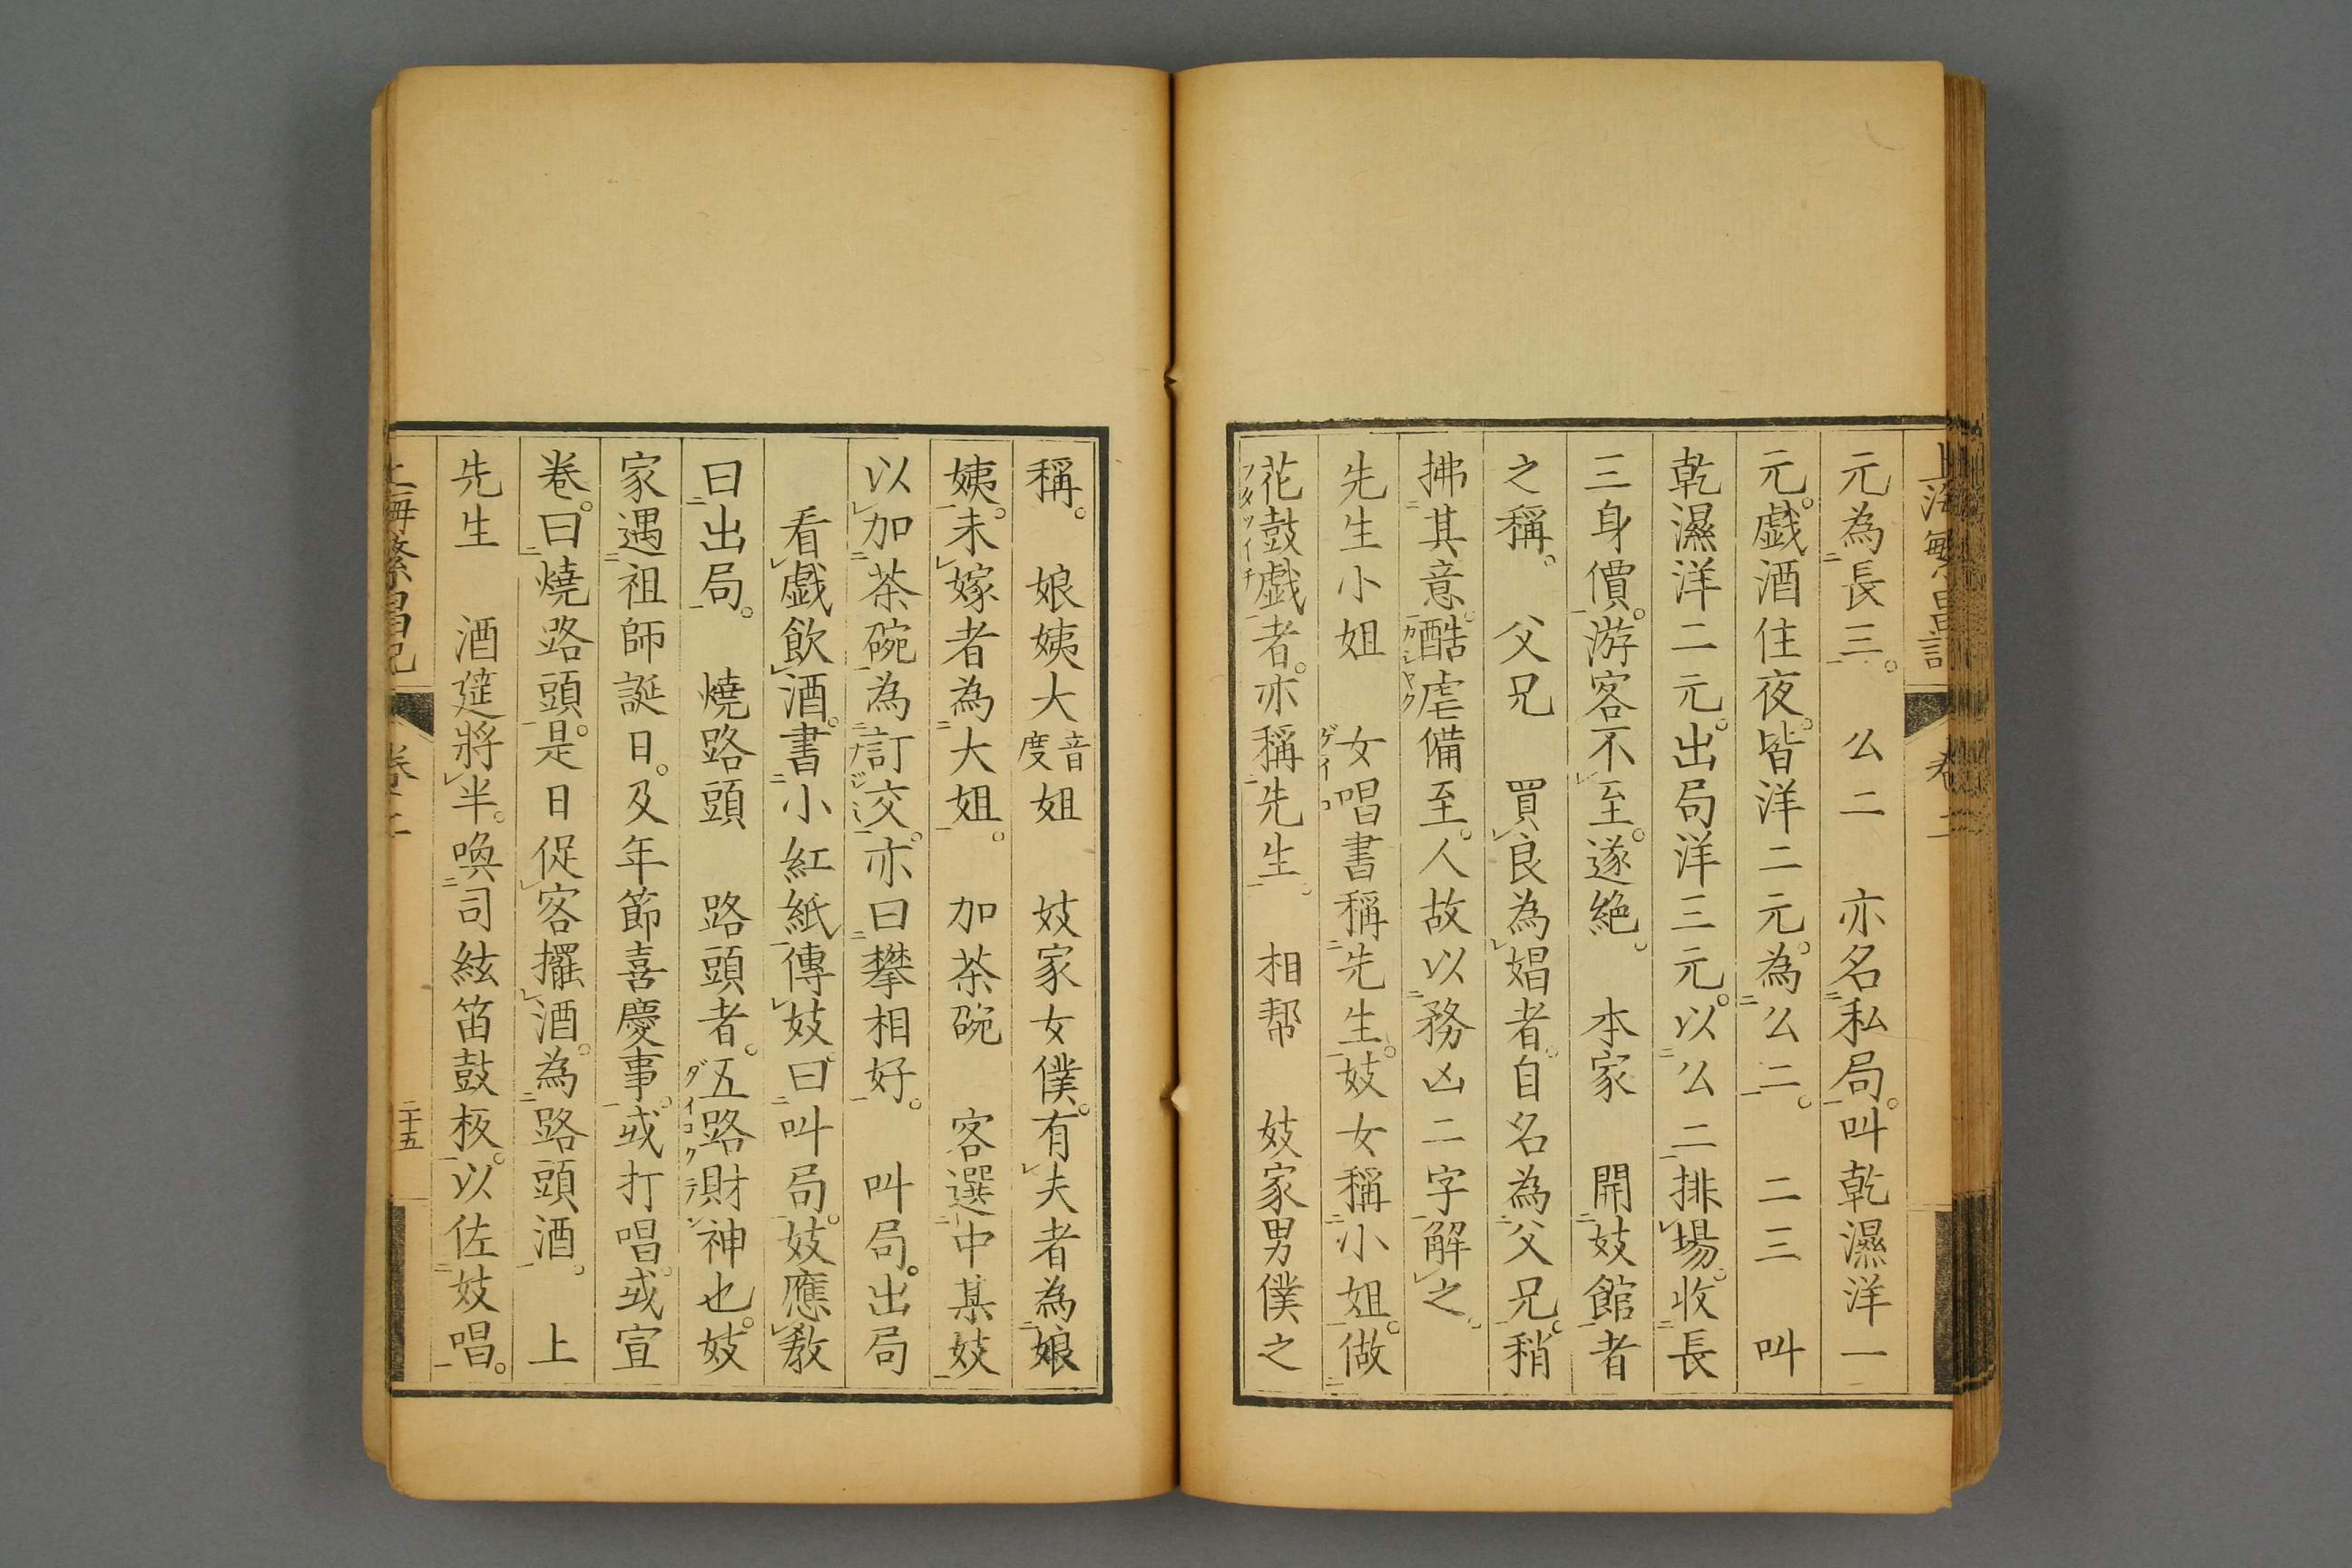 上海繁昌記 卷二
元為長三。 么二 亦名私局。叫乾濕洋一
元。戯酒住夜。皆洋二元。為么二。 二三 叫
乾濕洋二元。出局洋三元。以么二排場。收長
三身價。游客不至。遂絶。 本家 開妓館者
之稱。 父兄 買良為娼者。自名為父兄。稍
拂其意。酷虐備至。人故以務凶二字解之。
先生小姐 女唱書稱先生。妓女稱小姐。做
花鼓戯者。亦稱先生。 相幇 妓家男僕之
稱。 娘姨大音度姐 妓家女僕。有夫者為娘
姨。未嫁者為大姐。 加茶碗 客選中某妓
以加茶碗為訂交。亦曰攀相好。 叫局。出局
看戯飲酒。書小紅紙傳妓。曰叫局。妓應教
曰出局。 燒路頭 路頭者。五路財神也。妓
家遇祖師誕日。及年節喜慶事。或打唱。或宣
卷。曰燒路頭。是日促客擺酒。為路頭酒。 上
先生 酒筵將半。喚司絃笛鼓板。以佐妓唱。
上海繁昌記 卷二 二十五